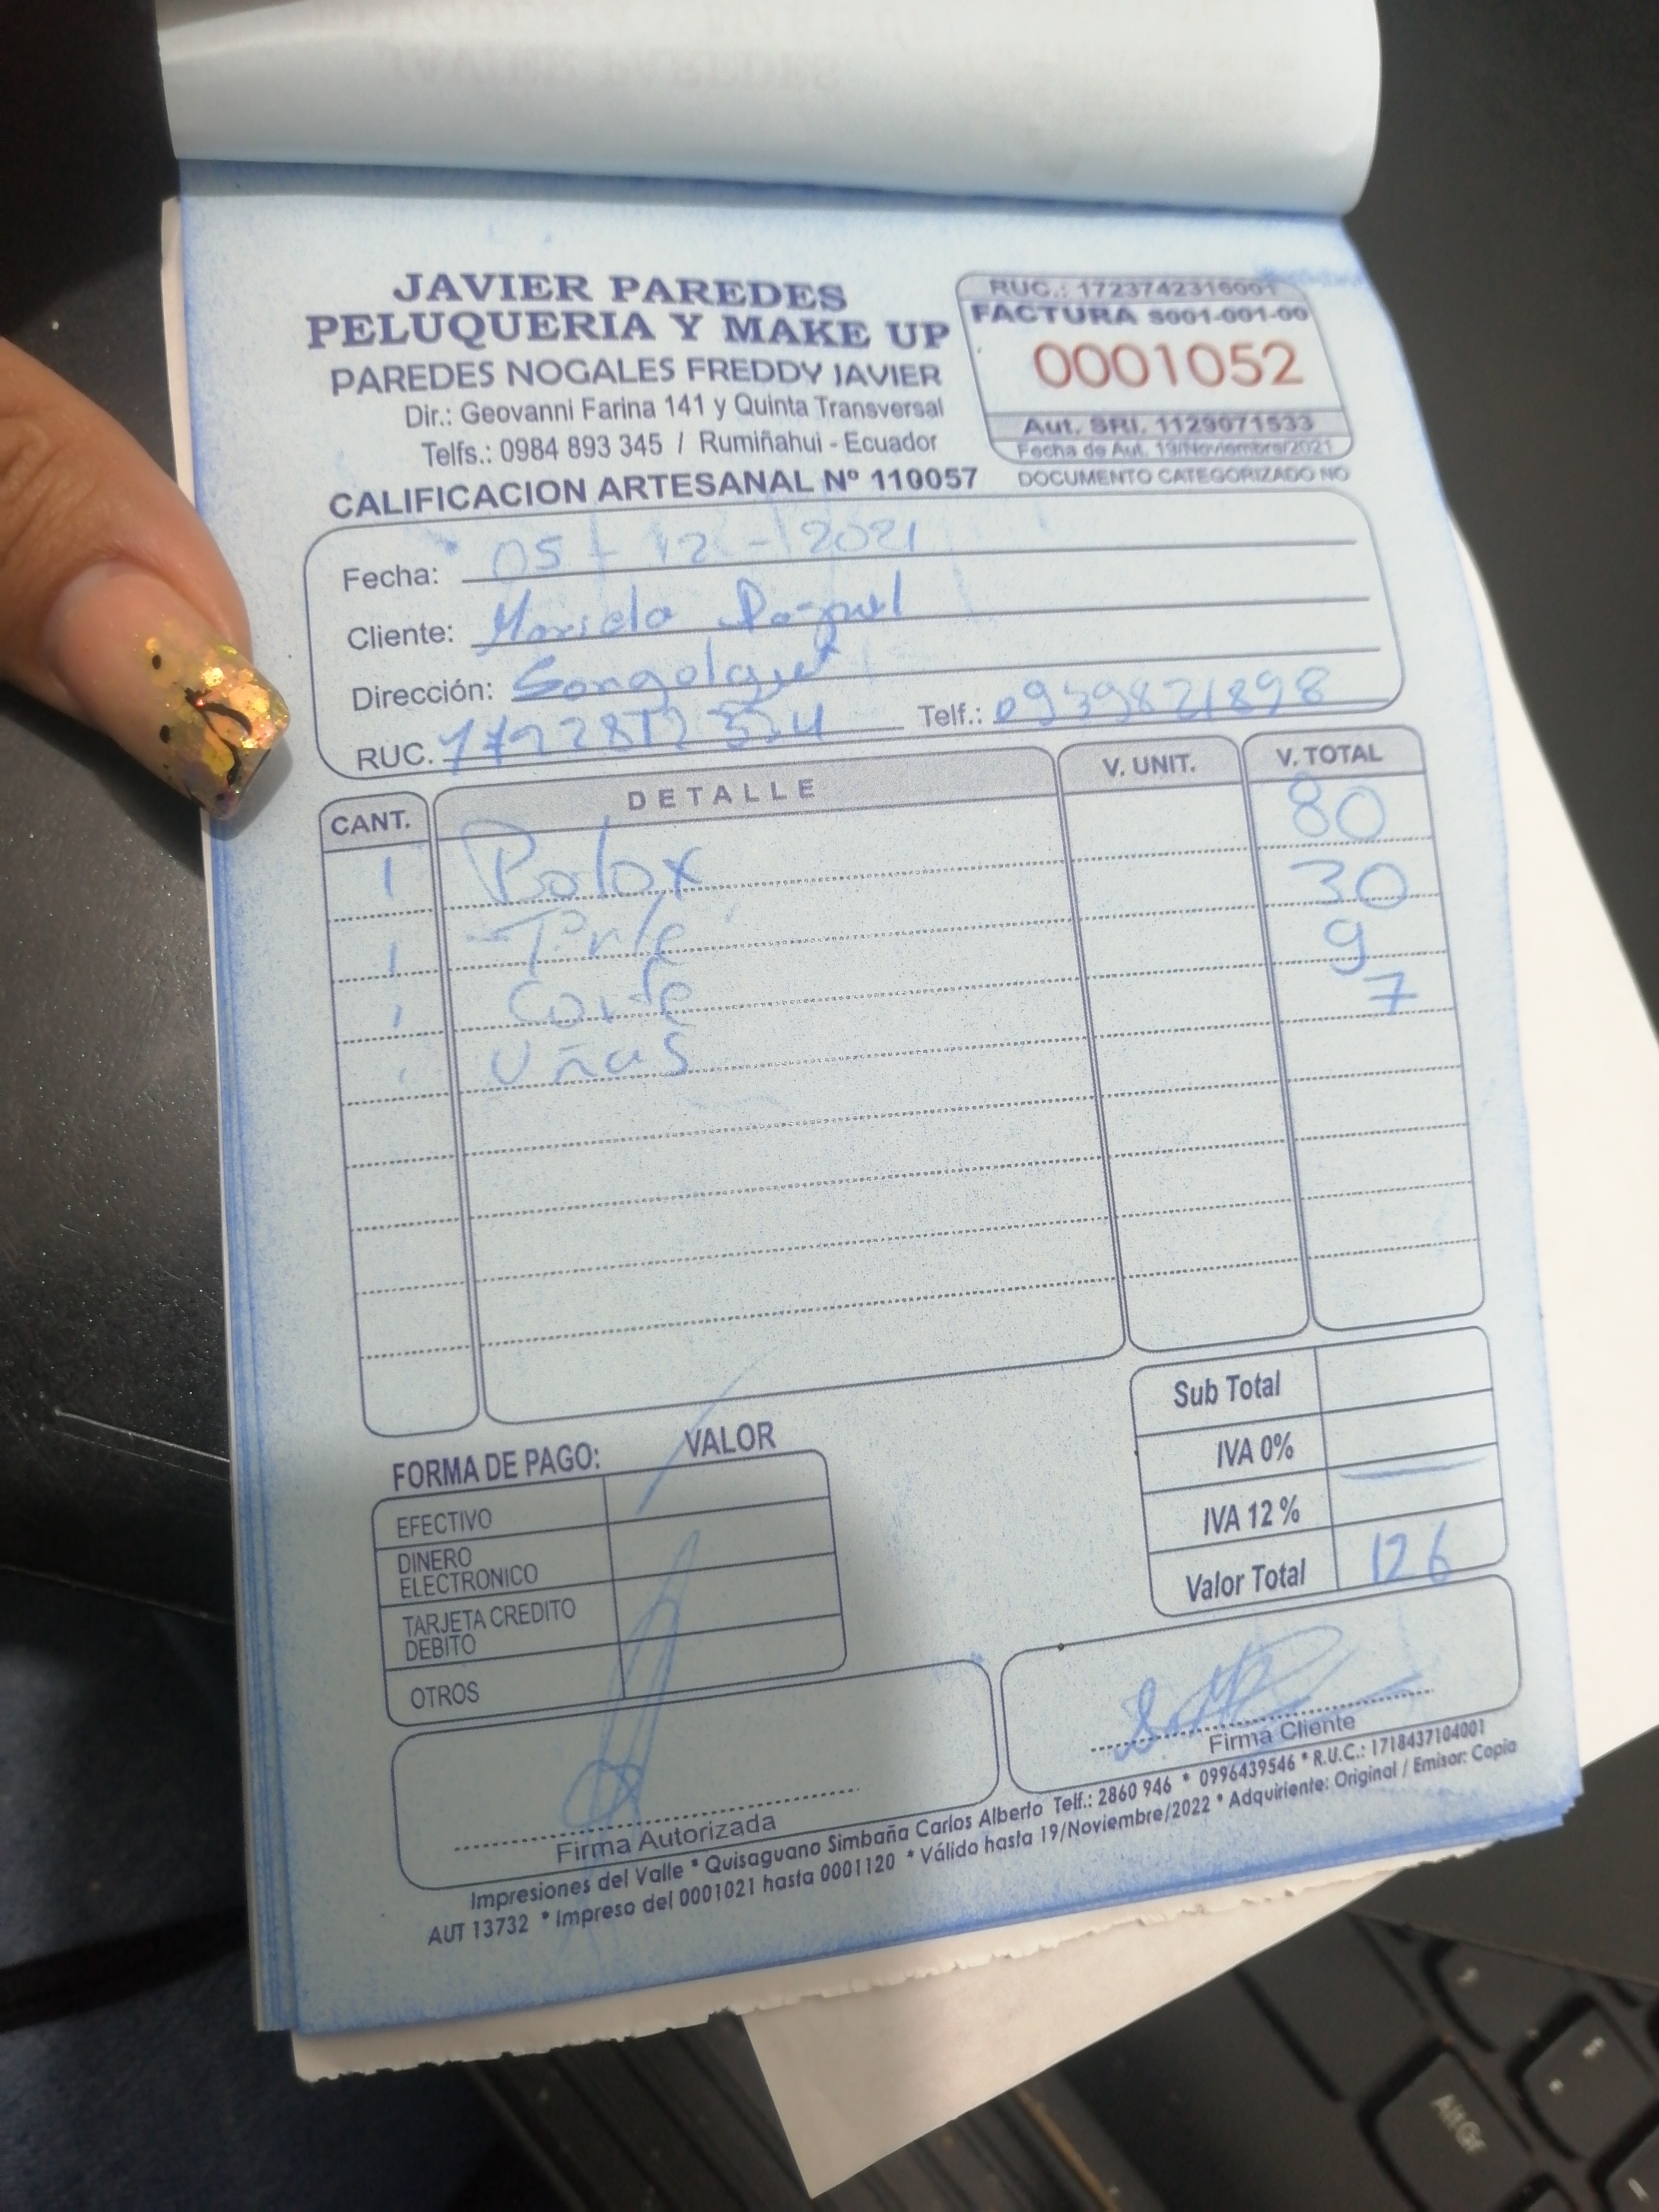 JAVIER PAREDES
PELUQUERIA Y MAKE UP
PAREDES NOGALES FREDDY JAVIER
Dir.: Geovanni Farina 141 y Quinta Transversal
Telfs.: 0984 893 345 / Rumiñahui - Ecuador
CALIFICACION ARTESANAL Nº 110057
RUC.: 1723742316001
FACTURA S001-001-00
0001052
Aut. SRI. 1129071533
Fecha de Aut. 19/Noviembre/2021
DOCUMENTO CATEGORIZADO NO
Fecha: 05 - 12 - 2021
Cliente:
Dirección:
RUC. Telf.: 0939821898
CANT. DETALLE V. UNIT. V. TOTAL
1 80
1 30
1 Corte 9
Uñas 7
Sub Total
IVA 0%
IVA 12 %
Valor Total 126
FORMA DE PAGO: VALOR
EFECTIVO
DINERO
ELECTRONICO
TARJETA CREDITO
DEBITO
OTROS
Firma Autorizada
Firma Cliente
Impresiones del Valle * Quisaguano Simbaña Carlos Alberto Telf.: 2860 946 * 0996439546 * R.U.C.: 1718437104001
AUT 13732 * Impreso del 0001021 hasta 0001120 * Válido hasta 19/Noviembre/2022 * Adquiriente: Original / Emisor: Copia
Alt Gr